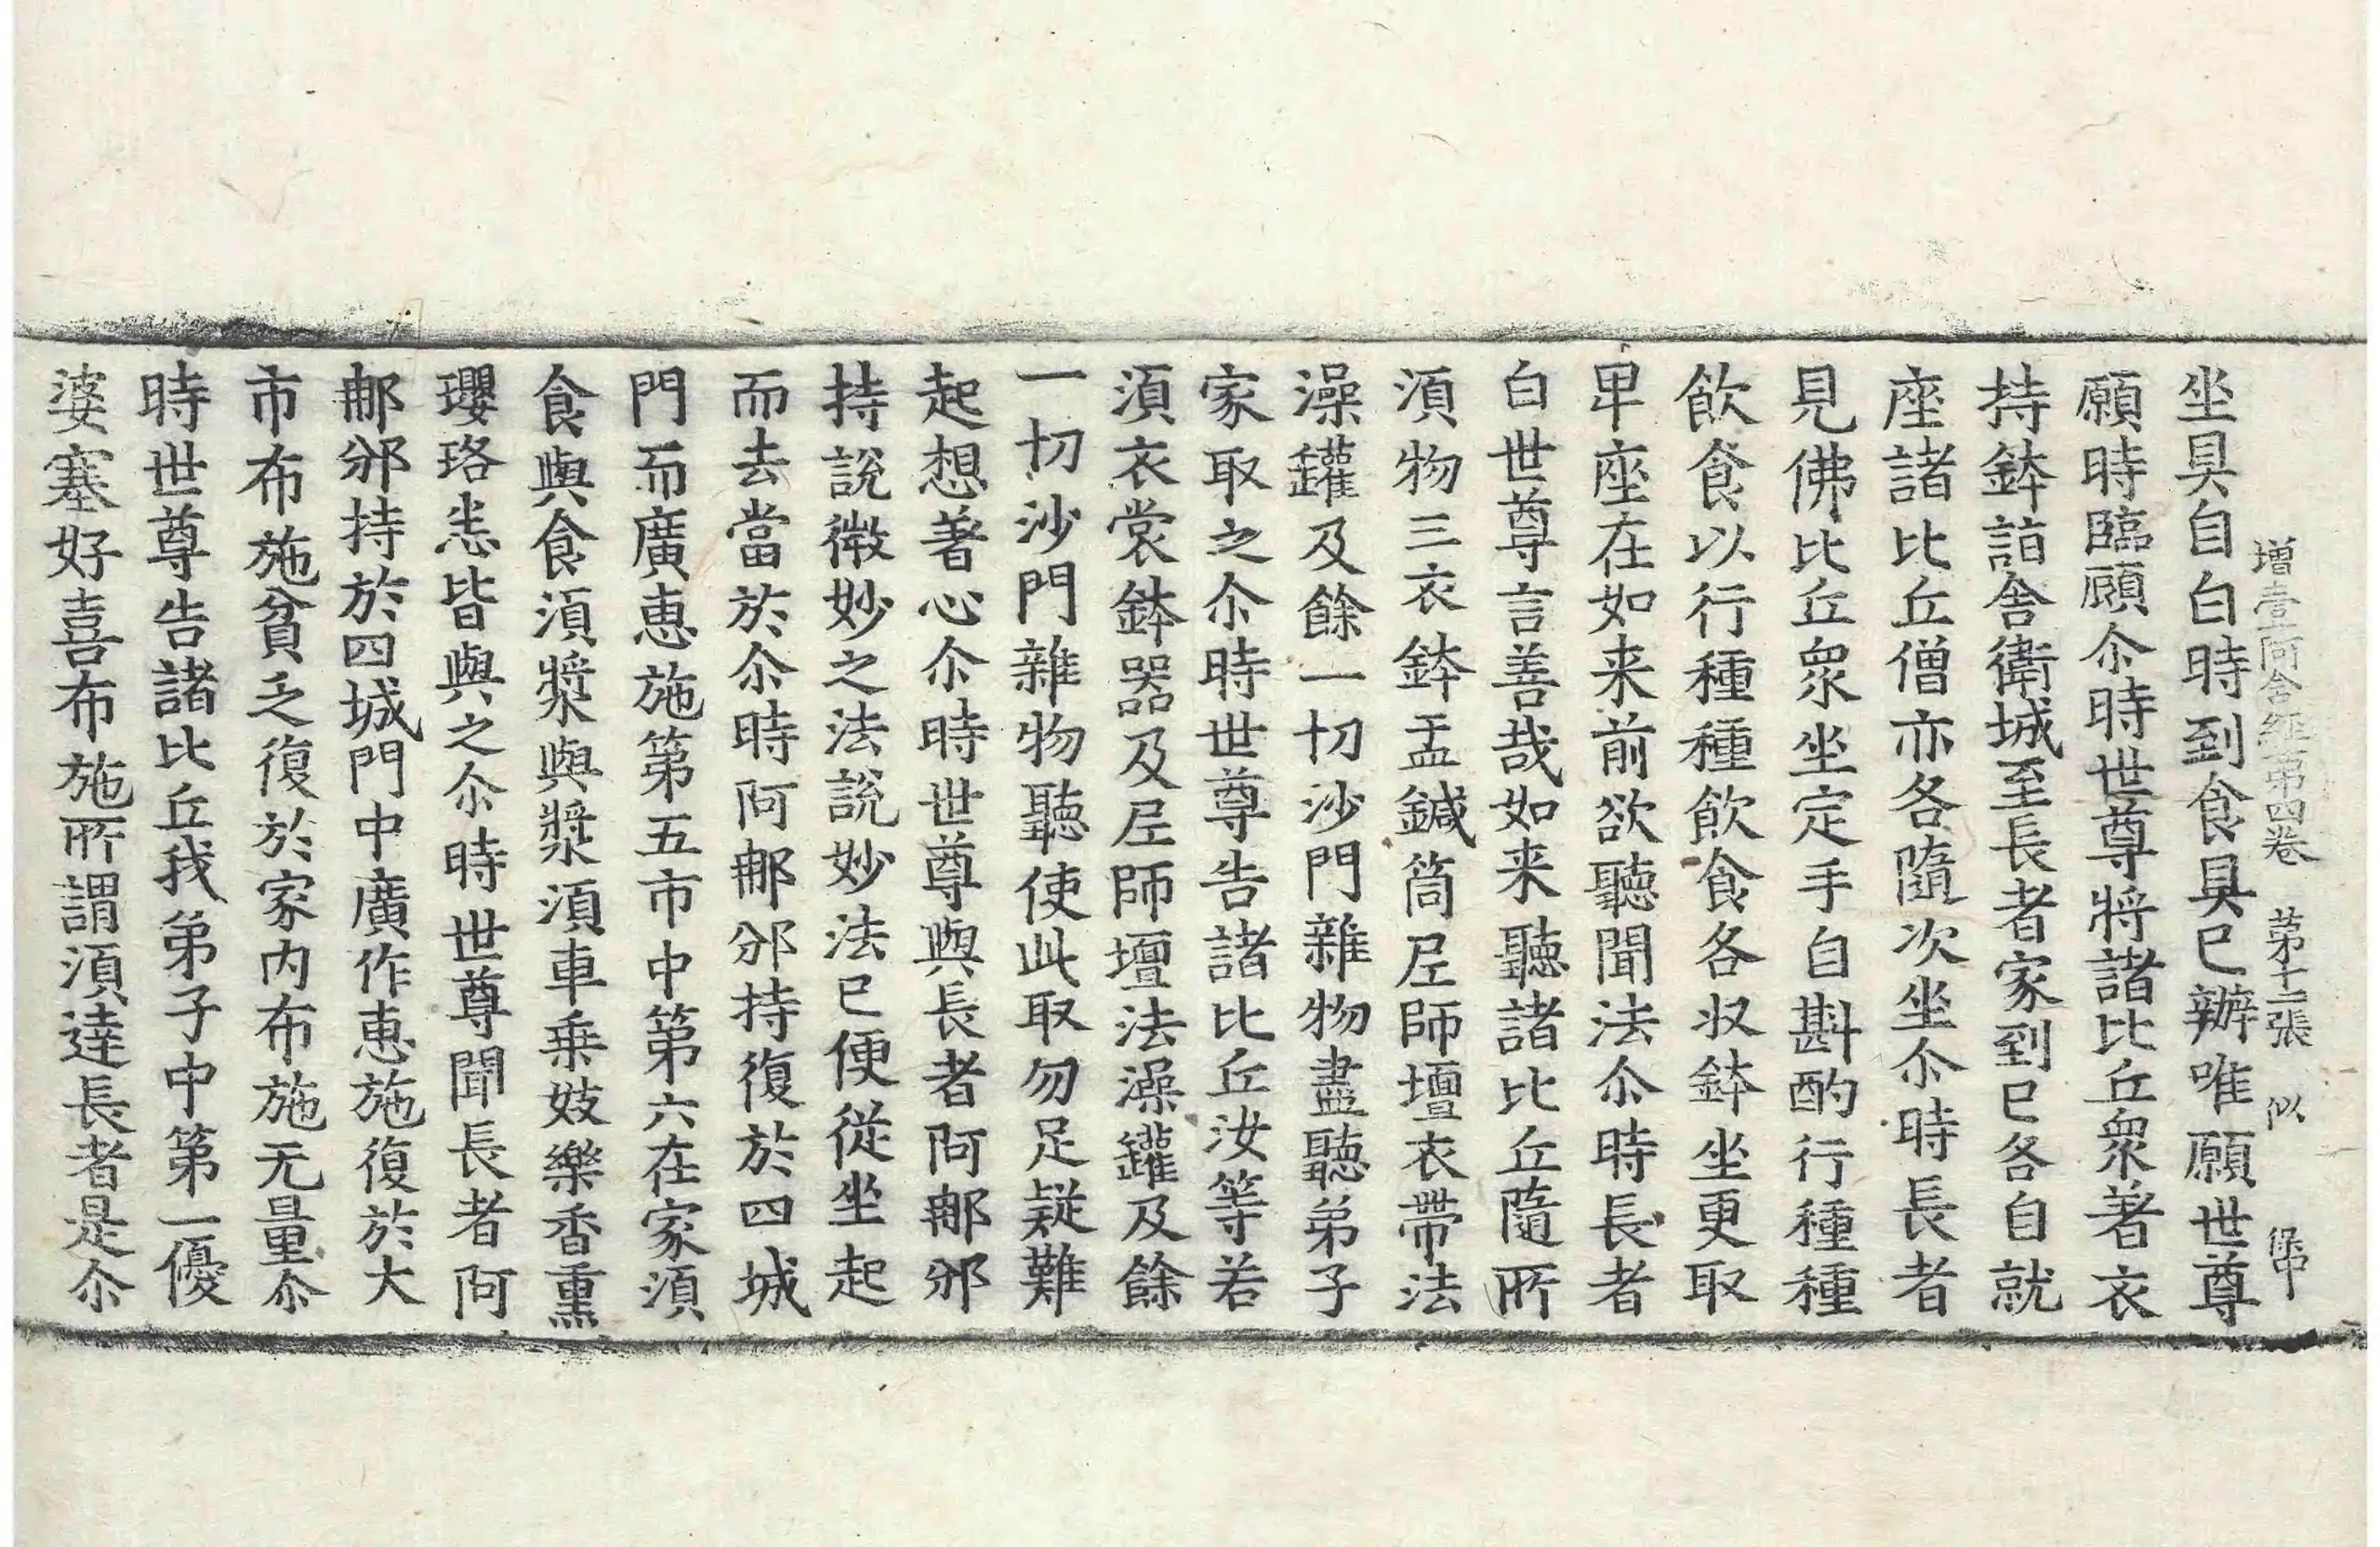 增壹阿含經第四卷　第十二張　似
坐具自白時到食具已辦唯願世尊
願時臨顧尒時世尊將諸比丘眾著衣
持鉢詣舍衛城至長者家到已各自就
座諸比丘僧亦各隨次坐尒時長者
見佛比丘眾坐定手自斟酌行種種
飲食以行種種飲食各収鉢坐更取
卑座在如来前欲聽聞法尒時長者
白世尊言善哉如来聽諸比丘隨所
湏物三衣鉢盂鍼筒尼師壇衣帶法
澡罐及餘一切沙門雜物盡聽弟子
家取之尒時世尊告諸比丘汝等若
湏衣裳鉢器及尼師壇法澡罐及餘
一切沙門雜物聽使此取勿足疑難
起想著心尒時世尊與長者阿那邠
持說微妙之法說妙法已便從坐起
而去當於尒時阿那邠持復於四城
門而廣惠施第五市中第六在家湏
食與食湏漿與漿湏車乗妓樂香熏
瓔珞悉皆與之尒時世尊聞長者阿
那邠持於四城門中廣作惠施復於大
市布施貧乏復於家内布施无量尒
時世尊告諸比丘我弟子中第一優
婆塞好喜布施所謂湏達長者是尒